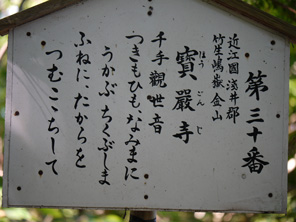 第三十番
近江國淺井郡
竹生嶋嶽金山
寶嚴寺
ほうごんじ
千手觀世音
つきもひもなみまに
うかぶちくぶしま
ふねに、たからを
つむこゝちして